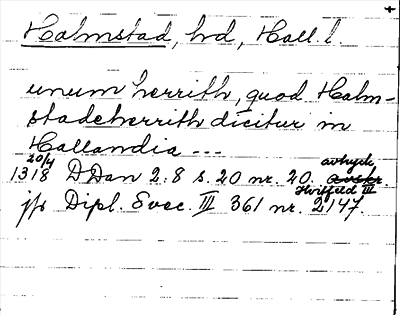 +
Halmstad, hd, Hall. l
unum herrith, quod Halm-
stadeherrith dicitur in
Hallandia ---
20/4
1318 DDan 2:8 s. 20 nr. 20. avtryck
Hvitfeld III
jfr Dipl. Svec. III 361 nr. 2147